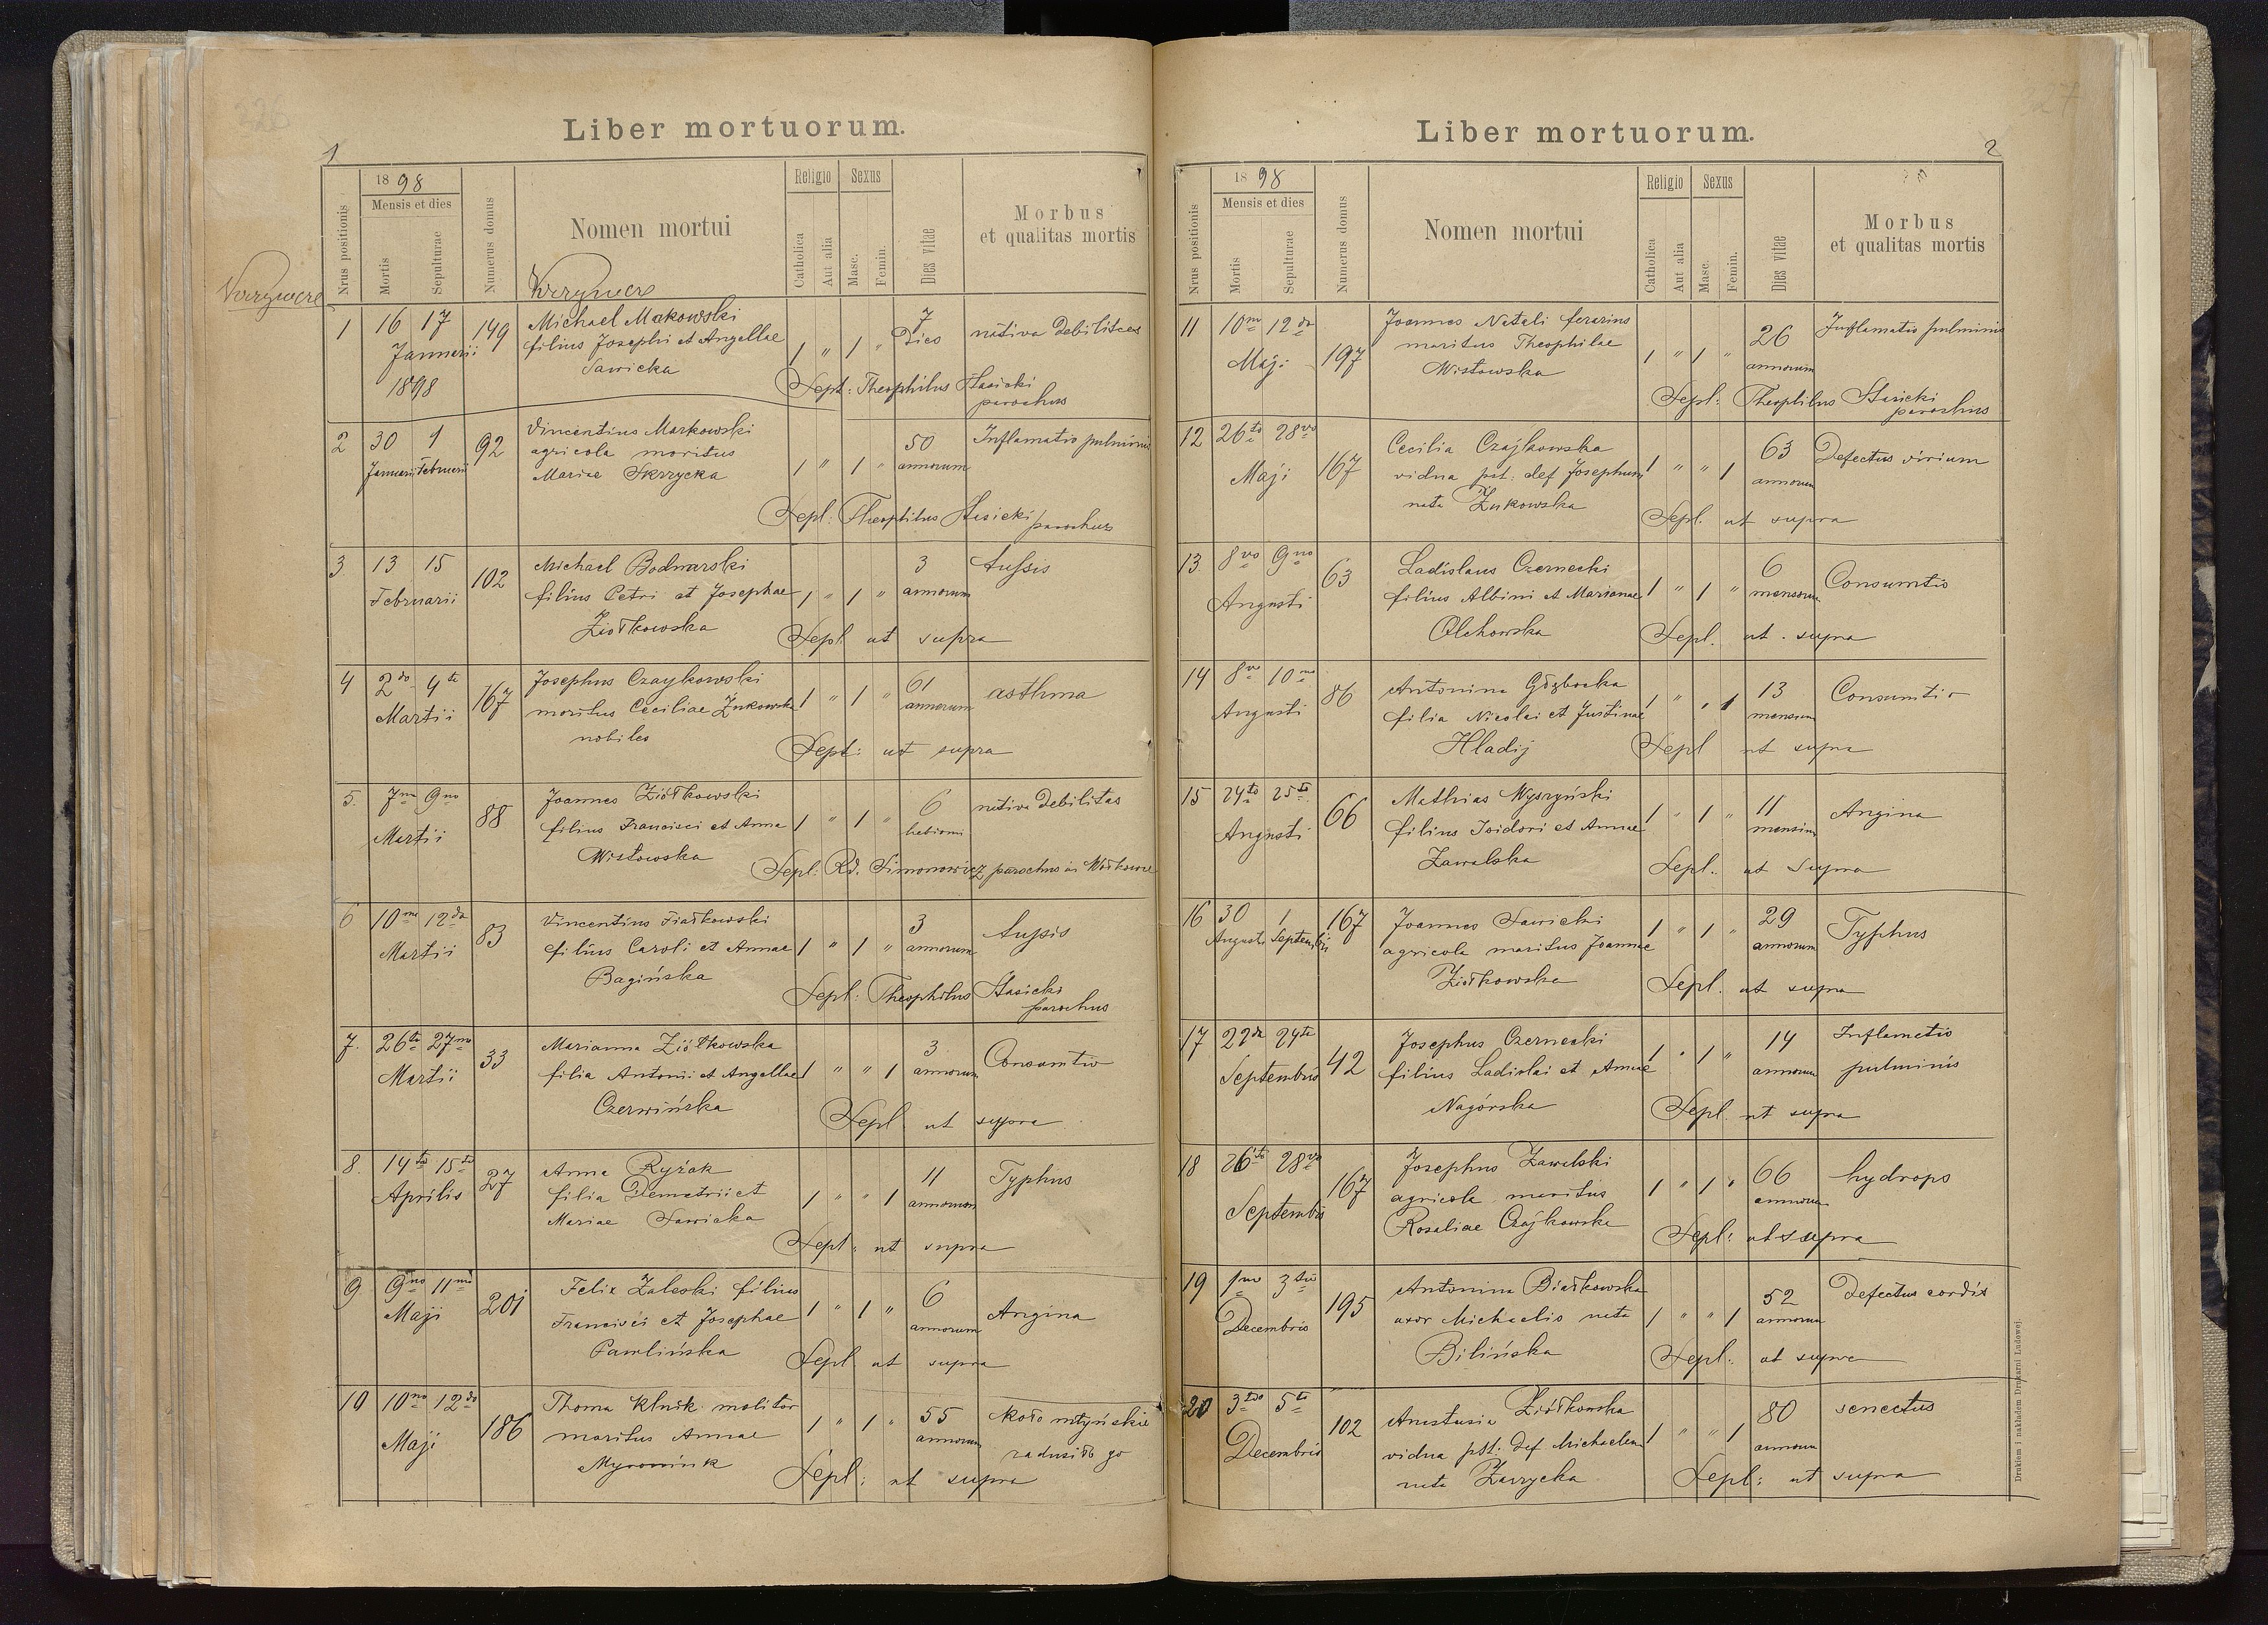 Liber mortuorum.
1
1898
Mensis et dies
Nrus positionis
Mortis
Sepulturae
Numerus domus
Nomen mortui
Religio
Sexus
Catholica
Aut alia
Masc.
Femin.
Dies vitae
Morbus
et qualitas mortis
1 16 17 149 Michael Makowski 7 nativa Debilitas
Januarii filius Josephi et Angellae 1 " 1 " Dies
1898 Sawicka Sepl: Theophilus Stasicki
parochus
2 30 1 92 Vincentius Markowski 50 Inflamatio pulminis
Januarii Februarii agricola maritus 1 " 1 " annorum
Mariae Skrzycka
Sepl: Theophilus Stasicki parochus
3 13 15 102 Michael Bodnarski 3 tussis
Februarii filius Petri et Josephae 1 " 1 " annorum
Ziółkowska Sepl ut supra
4 2do 4ta 167 Josephus Czaykowski 61 asthma
Martii maritus Ceciliae Żukowska 1 " 1 " annorum
nobiles Sepl: ut supra
5. 7ma 9no 88 Joannes Ziółkowski 6 nativa Debilitas
Martii filius Francisci et Anna 1 " 1 "
Wisłowska Sepl: Rd. Simonowicz parochus in Wołkowce
6 10ma 12da 83 Vincentius Fiałkowski 3 tussis
Martii filius Caroli et Annae 1 " 1 " annorum
Bagińska Sepl: Theophilus Stasicki
parochus
7. 26ta 27ma 33 Marianna Ziółkowska 3 Consumtio
Martii filia Antonii et Angellae 1 " " 1 annorum
Czerwińska Sepl ut supra
8. 14ta 15ta 27 Anna Ryżak 11 Typhus
Aprilis filia Demetrii et 1 " " 1 annorum
Mariae Sawicka
Sepl: ut supra
9 9no 11ma 201 Felix Zaleski filius 6 Angina
Maji Francisci et Josephae 1 " 1 " annorum
Pawlińska Sepl ut supra
10 10no 12do 186 Thoma Kluik molitor 55 koło młyńskie
Maji maritus Annae 1 " 1 " annorum zadusiło go
Sepl: ut supra
Liber mortuorum.
2
1898
Mensis et dies
Nrus positionis
Mortis
Sepulturae
Numerus domus
Nomen mortui
Religio
Sexus
Catholica
Aut alia
Masc.
Femin.
Dies vitae
Morbus
et qualitas mortis
11 10ma 12da 197 Joannes Natali ferarius 26 Inflamatio pulminis
Maji maritus Theophilae 1 " 1 " annorum
Wisłowska
Sepl: Theophilus Stasicki
parochus
12 26ta 28vo 167 Cecilia Czajkowska 63 Defectus virium
Maji vidua pst: def Josephum 1 " " 1 annorum
nata Żukowska Sepl. ut supra
13 8vo 9no 63 Ladislaus Czernecki 6 Consumtio
Augusti filius Albini et Marianae 1 " 1 " mensorum
Olchowska Sepl. ut supra
14 8vo 10ma 86 Antonina 13 Consumtio
Augusti filia Nicolai et Justinae 1 " " 1 mensium
Hladij Sepl ut supra
15 24ta 25ta 66 Mathias Wyszyński 11 Angina
Augusti filius Isidori et Annae 1 " 1 " mensium
Zawalska Sepl: ut supra
16 30 1 167 Joannes Sawicki 29 Typhus
Augusti Septembris agricola maritus Joannae 1 " 1 " annorum
Ziółkowska Sepl. ut supra
17 22da 24ta 42 Josephus Czernecki 14 Inflamatio
Septembris filius Ladislai et Annae 1 " 1 " annorum pulminis
Nagórska Sepl ut supra
18 26ta 28vo 167 Josephus Zawalski 66 hydrops
Septembris agricola maritus 1 " 1 " annorum
Rosaliae Czajkowska Sepl: ut supra
19 1mo 3tio 195 Antonina Białkowska 52 Defectus cordis
Decembris uxor Michaelis nata 1 " " 1 annorum
Bilińska Sepl: ut supra
20 3tio 5ta 102 Anastasia Ziółkowska 80 senectus
Decembris vidua pst: def Michaelem 1 " " 1 annorum
nata Zarzycka Sepl: ut supra
Drukiem i nakładem Drukarni Ludowej.